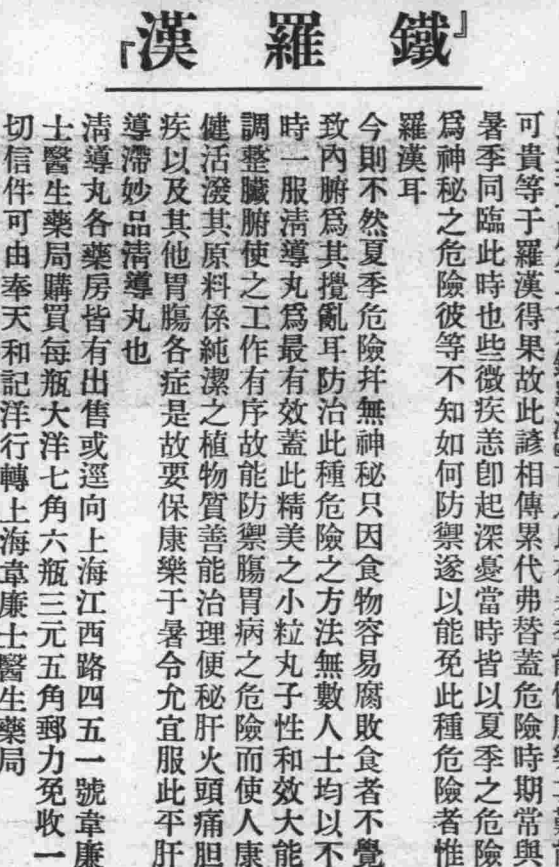 『鐵羅漢』
可貴等于羅漢得果故此諺相傳累代弗替蓋危險時期常與
暑季同臨此時也些微疾恙卽起深憂當時皆以夏季之危險
爲神秘之危險彼等不知如何防禦遂以能免此種危險者惟
羅漢耳
今則不然夏季危險幷無神秘只因食物容易腐敗食者不覺
致內腑爲其攪亂耳防治此種危險之方法無數人士均以不
時一服淸導丸爲最有效蓋此精美之小粒丸子性和效大能
調整臟腑使之工作有序故能防禦腸胃病之危險而使人康
健活潑其原料係純潔之植物質善能治理便秘肝火頭痛胆
疾以及其他胃腸各症是故要保康樂于暑令允宜服此平肝
導滯妙品淸導丸也
淸導丸各藥房皆有出售或逕向上海江西路四五一號韋廉
士醫生藥局購買每瓶大洋七角六瓶三元五角郵力免收一
切信件可由奉天和記洋行轉上海韋廉士醫生藥局